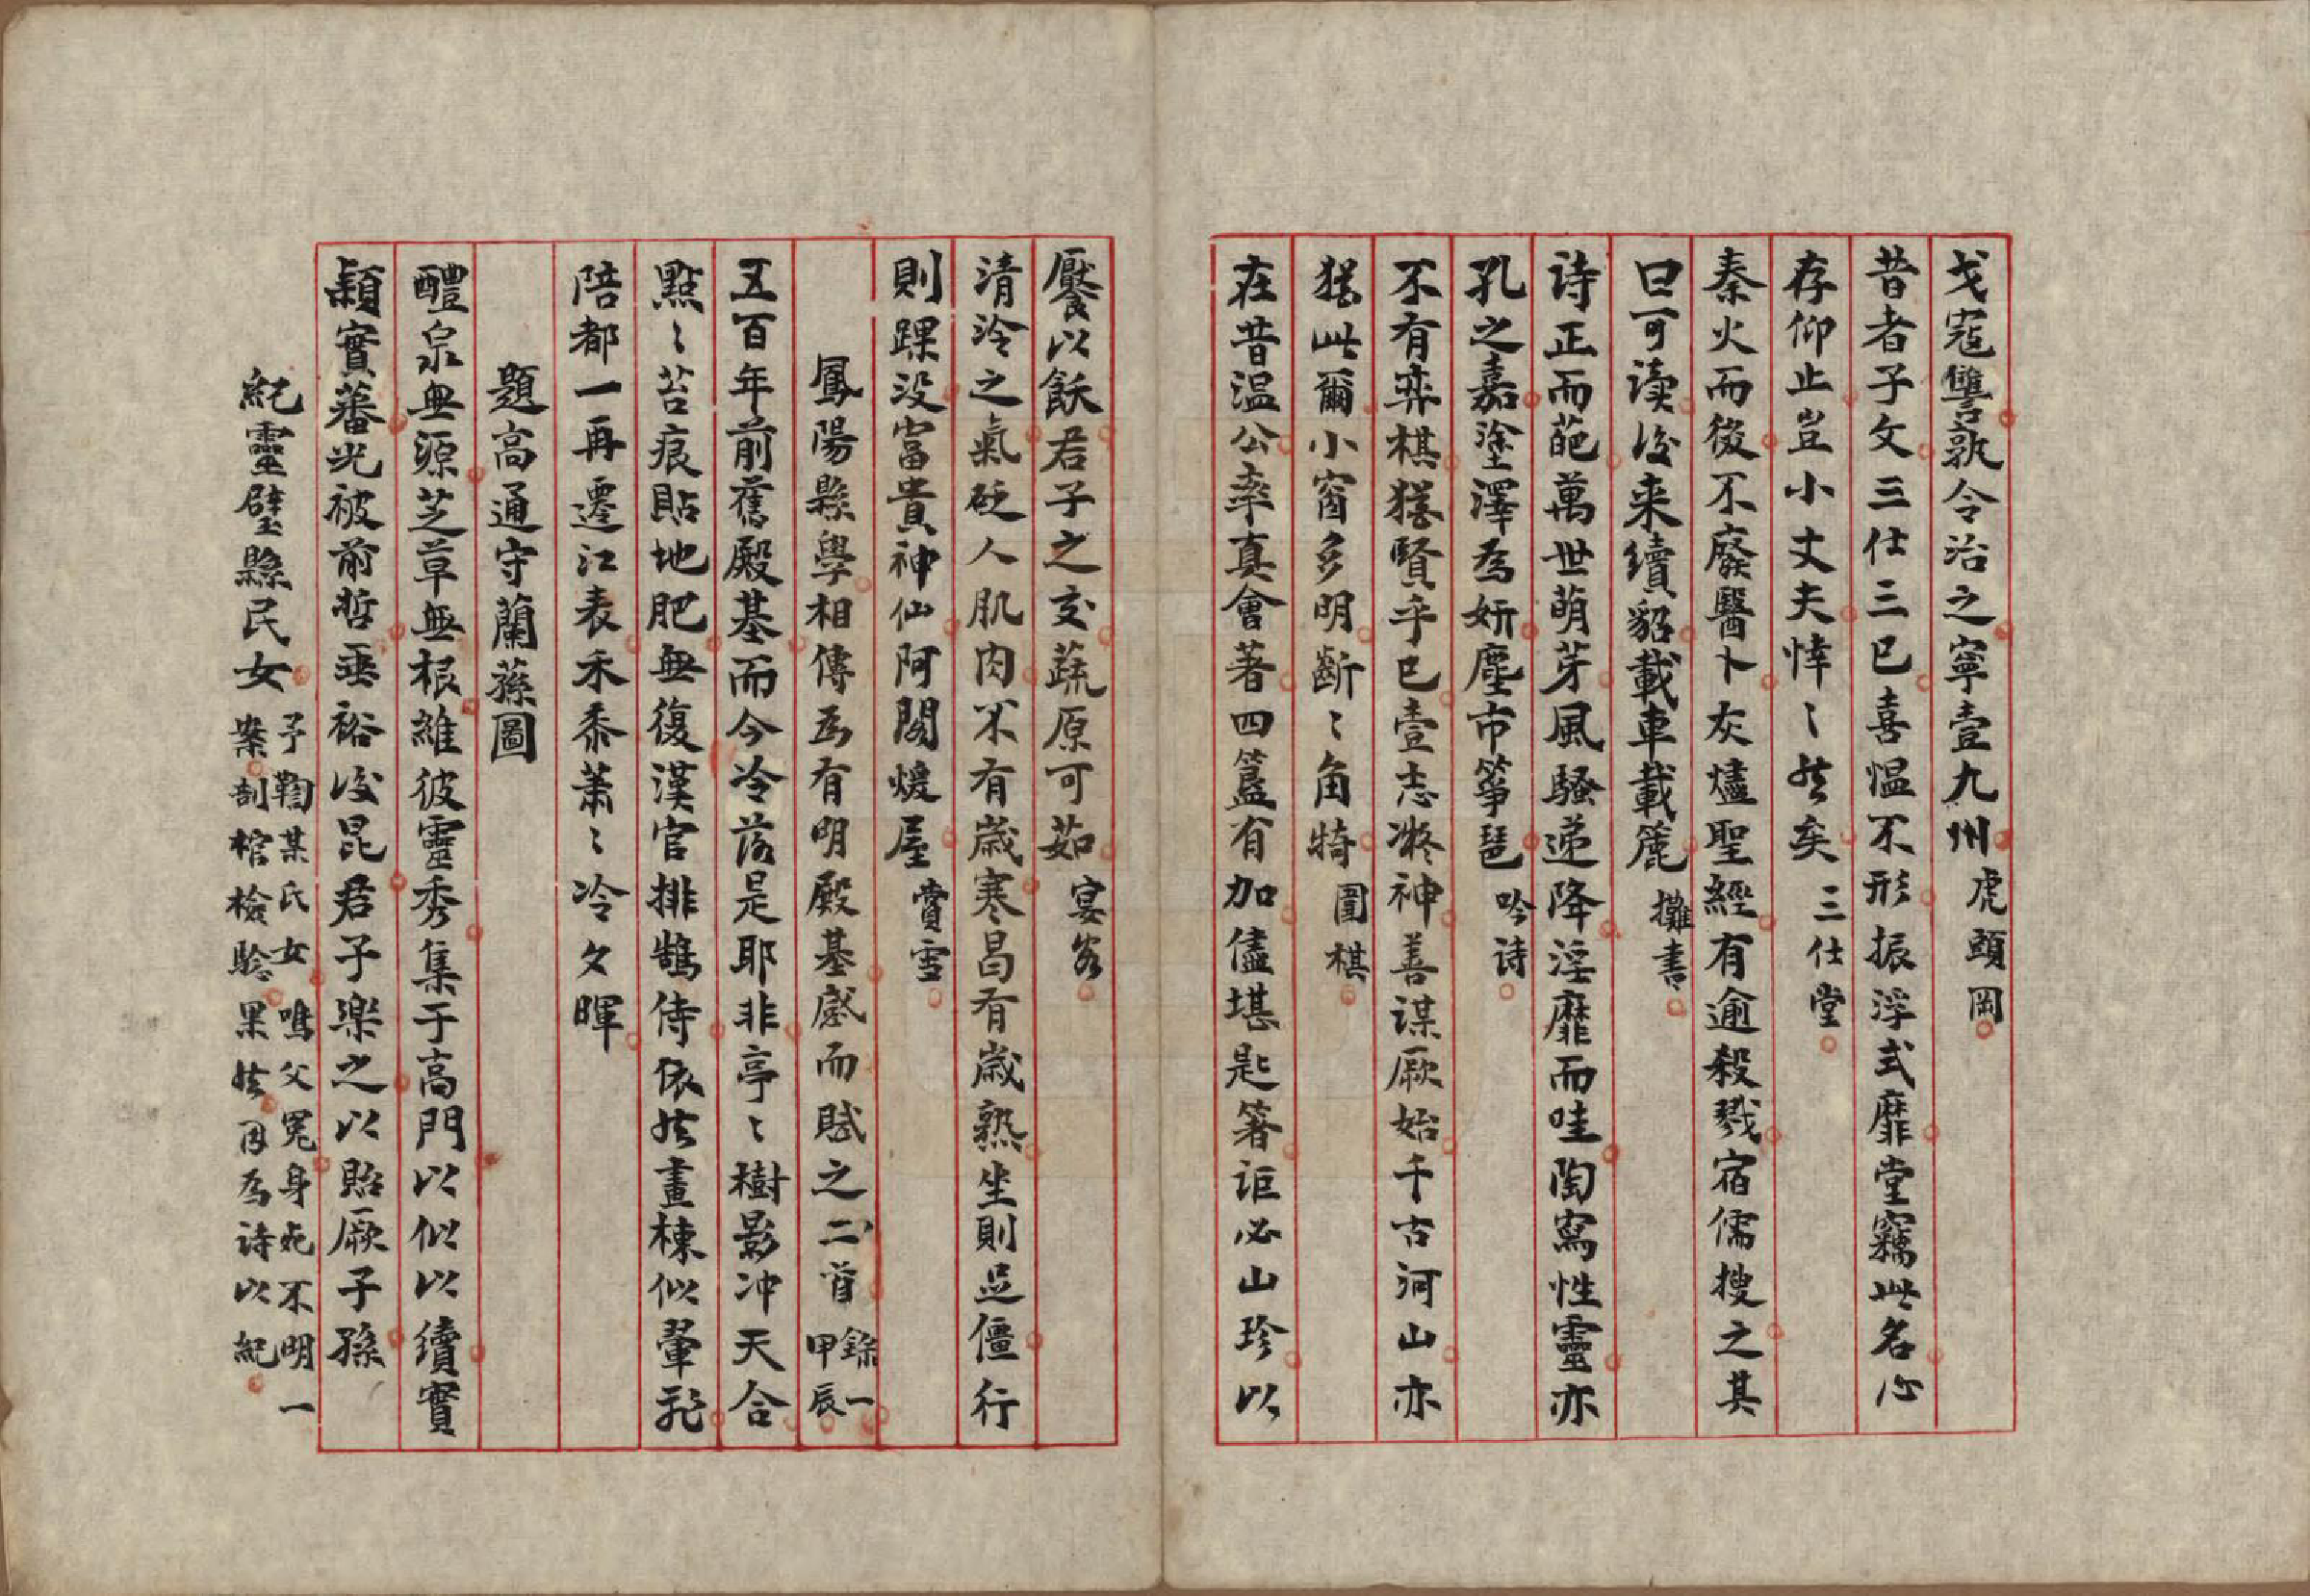 戈寇讐孰令治之寧壹九州虎頭岡
昔者子文三仕三已喜愠不形振浮式靡堂竊此名心
存仰止豈小丈夫悻〻然矣三仕堂
秦火而後不廢醫卜灰燼聖經有逾殺戮宿儒搜之其
曰可讀後来續貂載車載簏攤書
诗正而葩萬世萌芽風騷递降淫靡而哇陶寫性靈亦
孔之嘉塗澤為妍塵市箏琶吟诗
不有弈棋猶賢乎已壹志凝神善谋厥始千古河山亦
猶此爾小窗多明斷〻角犄圍棋
在昔温公率真會著四簋有加儘堪匙箸讵必山珍以
饜以飫君子之交蔬原可茹宴客
清泠之氣砭人肌肉不有歲寒曷有歲熟坐則足僵行
則踝没富貴神仙阿閣煖屋賞雪
鳳陽縣學相傳為有明殿基感而賦之二首錄一甲辰
五百年前舊殿基而今冷落是耶非亭〻樹影冲天合
點〻苔痕貼地肥無復漢官排鵠侍依然畫棟似翬飛
陪都一再遷江表禾黍萧〻冷夕暉
題高通守蘭蓀圖
醴泉無源芝草無根維彼靈秀集于高門以似以續實
穎實蕃光被前哲垂裕後昆君子樂之以貽厥子孫
紀靈璧縣民女予鞫某氏女鳴父冤身死不明一
案剖棺檢驗果然因為诗以紀